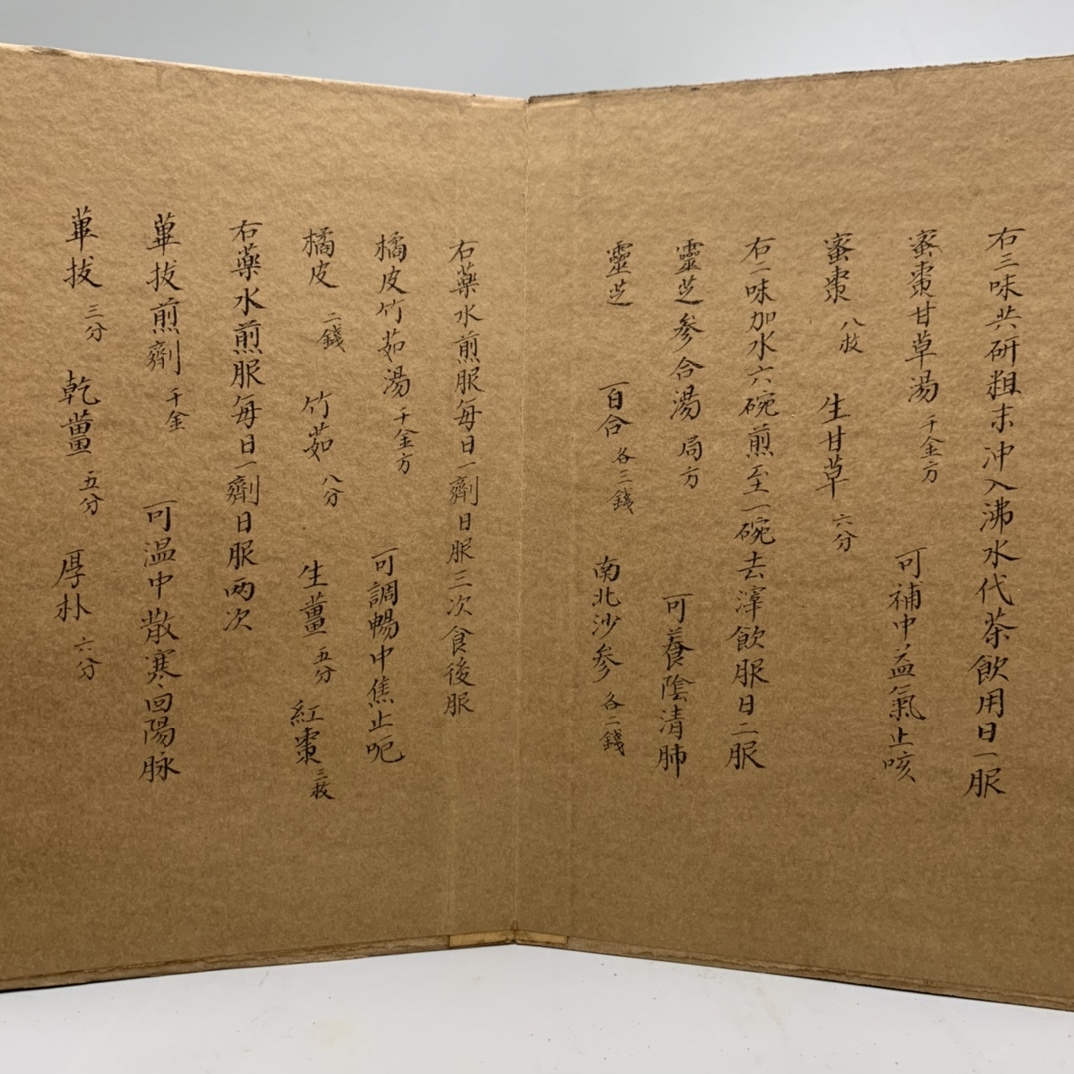 右三味共研粗末沖入沸水代茶飲用日一服
蜜棗甘草湯 千金方 可補中益氣止咳
蜜棗 八枚 生甘草 六分
右一味加水六碗煎至一碗去滓飲服日二服
靈芝参合湯 局方 可養陰清肺
靈芝 百合 各三錢 南北沙参 各二錢
右藥水煎服每日一劑日服三次食後服
橘皮竹茹湯 千金方 可調暢中焦止呃
橘皮 二錢 竹茹 八分 生薑 五分 紅棗 三枚
右藥水煎服每日一劑日服两次
蓽拔煎劑 千金 可温中散寒回陽脉
蓽拔 三分 乾薑 五分 厚朴 六分